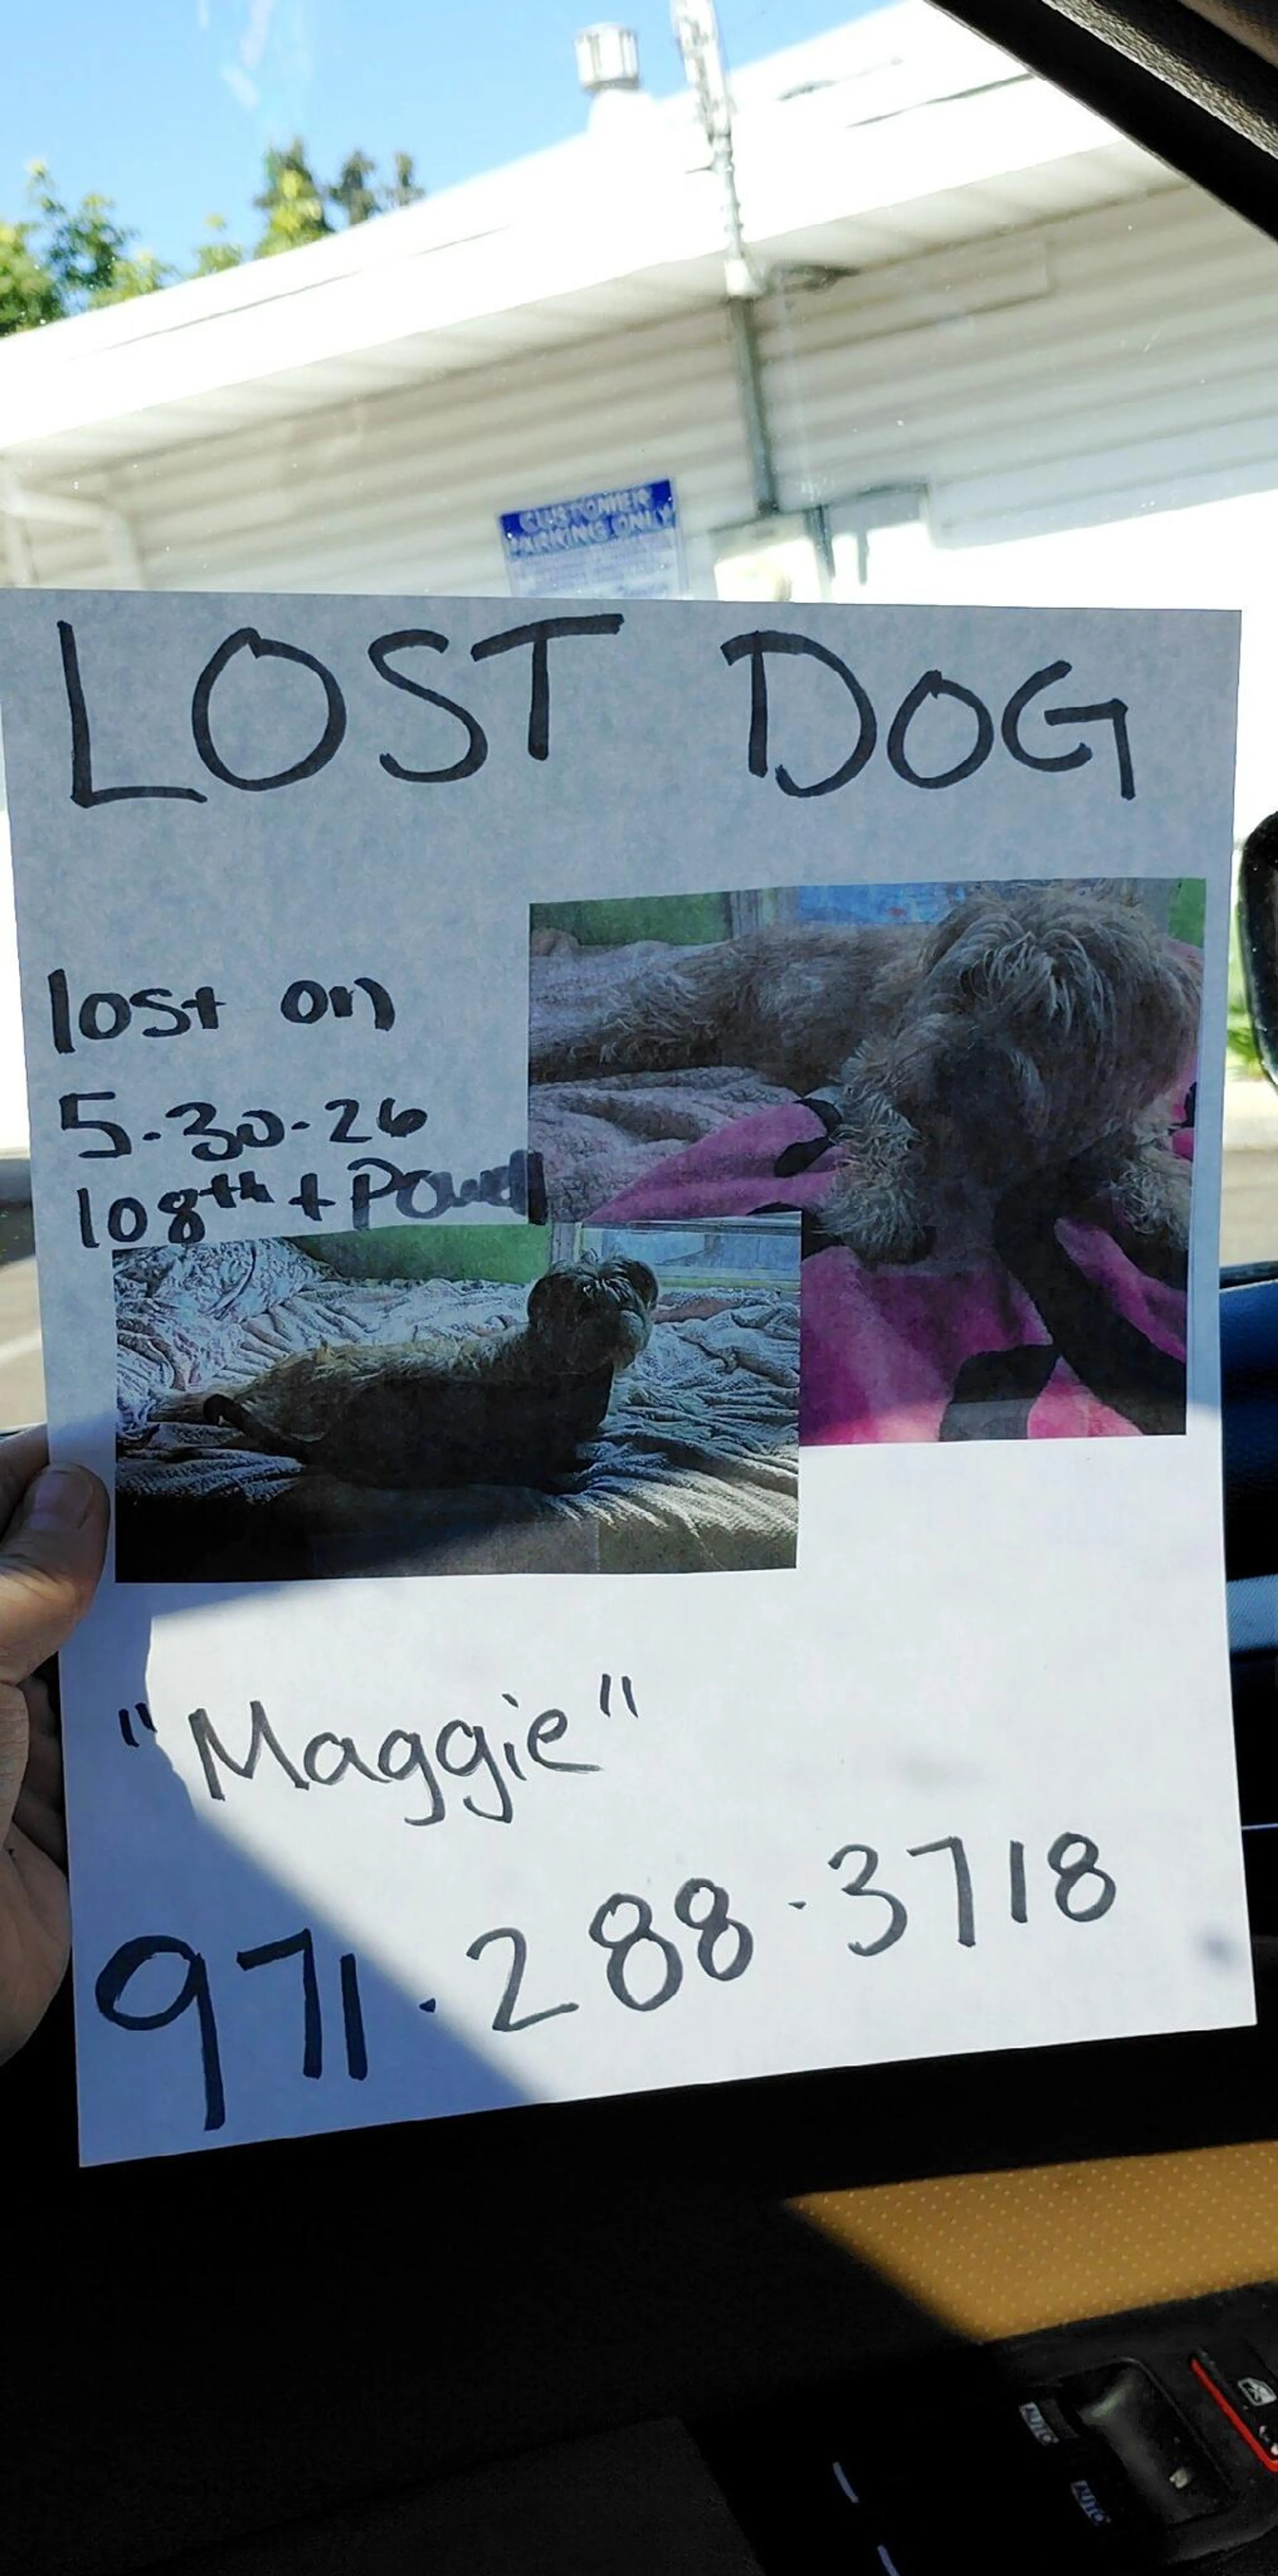 CUSTOMER
PARKING ONLY
LOST DOG
lost on
5-30-26
108th + Powell
"Maggie"
971.288.3718
AUTO
AUTO